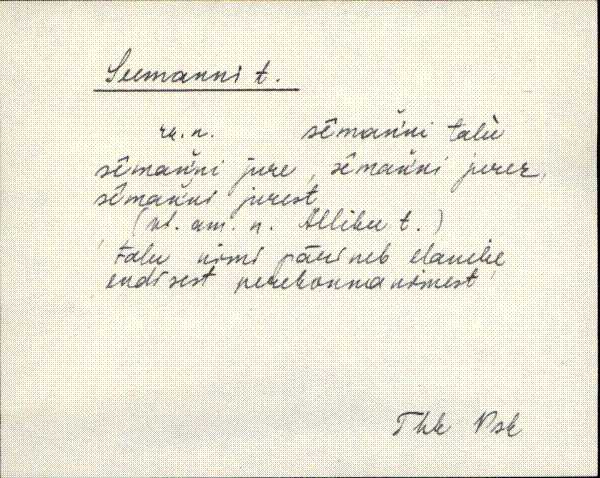 Seemanni t.
rh. n. sēmaňni talu
sēmaňni jure, sēmaňni jurez,
sēmaňni jurest
(vt. am. n. Alliku t.)
Talu nimi pärineb elanike
endisest perekonnanimest
Thk Psk